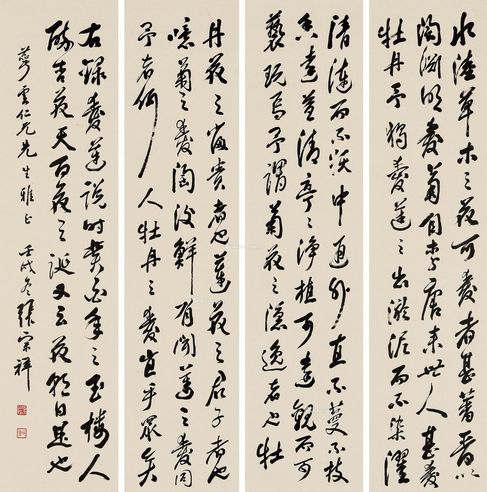 水陸草木之花可愛者甚蕃晉
陶淵明愛菊自李唐來世人甚愛
牡丹予獨愛蓮之出淤泥而不染濯
清漣而不妖中通外直不蔓不枝
香遠益清亭亭淨植可遠觀而不可
褻玩焉予謂菊花之隱逸者也牡
丹花之富貴者也蓮花之君子者也
噫菊之愛陶後鮮有聞蓮之愛同
予者何人牡丹之愛宜乎眾矣
右錄愛蓮說時年之玉樓人
醉花天百花之誕又云花朝日是也
萼雲仁兄先生雅正 壬戌冬 張宗祥